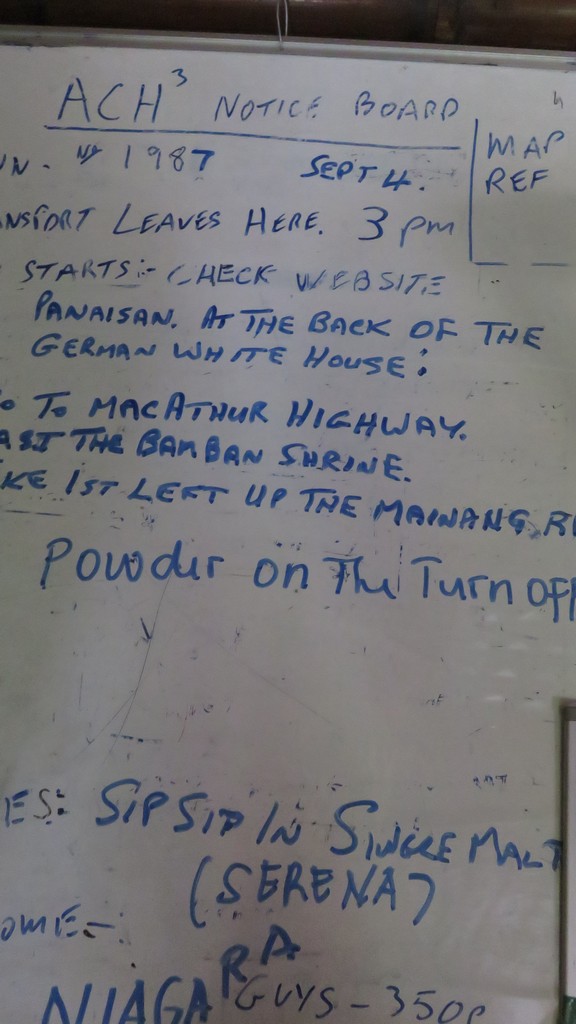 ACH³ NOTICE BOARD
MAP
REF
UN. Nº 1987 SEPT 4.
NSPORT LEAVES HERE. 3 pm
STARTS:- CHECK WEBSITE
PANAISAN. AT THE BACK OF THE
GERMAN WHITE HOUSE:
O TO MACATHUR HIGHWAY.
AST THE BAMBAN SHRINE.
KE 1ST LEFT UP THE MAINANG R
Powder on The Turn OFF
ES: SIP SIP IN SINGLE MALT
(SERENA)
OME-:
NIAGARA
GUYS - 350P